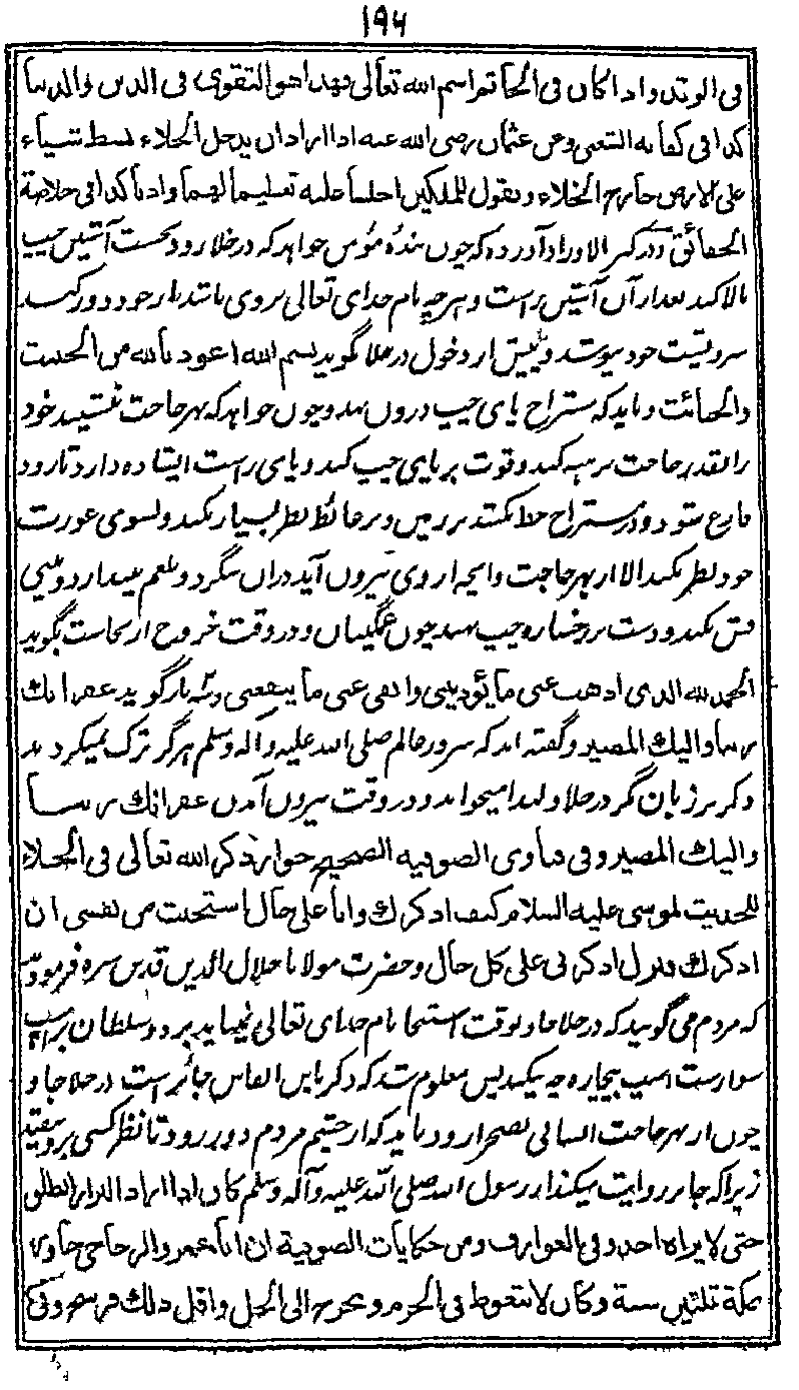 ۱۹۶
فی الوتد واذا کان فی الخاتم اسم الله تعالی فهذا هو التقوی فی الدین والدنیا
کذا فی کفایه الشعبی وعن عثمان رضی الله عنه اذا اراد ان یدخل الخلاء بسط شیاء
علی الارض خارج الخلاء ویقول للملکین اجلسا علیه تعلیما لهما وادبا کذا فی خلاصة
الحقائق ودر کنز الاوراد آورده که چون بندهٔ مؤمن خواهد که در خلا رود نخست آستین چپ
بالا کند بعد از آن آستین راست و هرچه نام خدای تعالی بروی باشد باز خود دور کند
سر وپشت خود بپوشد و پیش از دخول در خلا گوید بسم الله اعوذ بالله من الخبث
والخبائث و باید که بمستراح پای چپ درون نهد و چون خواهد که بهر حاجت نشیند خود
را بقدر حاجت برهنه کند و قوت بر پای چپ کند و پای راست ایستاده دارد تا زود
فارغ شود و در مستراح خط نکشد بر زمین و بر حائط نظر بسیار نکند و بسوی عورت
خود نظر نکند الا از بهر حاجت و انچه از وی بیرون آید در ان ننگرد و بلغم نیندازد و بینی
فش نکند و دست بر رخساره چپ نهد چون غمگینان و در وقت خروج از نجاست بگوید
الحمد لله الذی اذهب عنی ما یؤذینی وابقی عنی ما ینفعنی و سه بار گوید غفرانك
ربنا والیك المصیر و گفته اند که سرور عالم صلی الله علیه و آله وسلم هرگز ترک نمیکردند
ذکر بر زبان مگر در خلا و لهذا میخواندند در وقت بیرون آمدن غفرانك ربنا
والیك المصیر وفی فتاوی الصوفیه الصحیح جواز ذکر الله تعالی فی الخلاء
للحدیث لموسی علیه السلام کیف اذکرك وانا علی حال استحیت من نفسی ان
اذکرك فنزل اذکرنی علی کل حال و حضرت مولانا جلال الدین قدس سره فرموده
که مردم می گویند که در خلا جا و بوقت استنجا نام خدای تعالی نمیباید برد و سلطان بر اسپ
سوارست اسپ بیچاره چه میکند پس معلوم شد که ذکر پاس انفاس جائز است در خلا جا و
چون از بهر حاجت انسانی بصحرا رود باید که از چشم مردم دور رود تا نظر کسی برو نیفتد
زیرا که جابر روایت میکند از رسول الله صلی الله علیه وآله وسلم کان اذا اراد البراز انطلق
حتی لا یراه احد وفی العوارف ومن حکایات الصوفیة ان ابا عمرو الزجاجی جاور
بمکة ثلثین سنة وکان لا یتغوط فی الحرم ویخرج الی الحل واقل ذلك فرسخ وفی